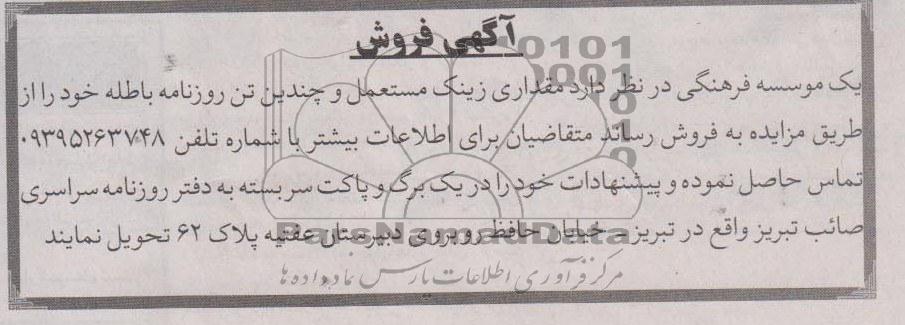 آگهی فروش
یک موسسه فرهنگی در نظر دارد مقداری زینک مستعمل و چندین تن روزنامه باطله خود را از
طریق مزایده به فروش رساند متقاضیان برای اطلاعات بیشتر با شماره تلفن ۰۹۳۹۵۲۶۳۷۴۸
تماس حاصل نموده و پیشنهادات خود را در یک برگ و پاکت سربسته به دفتر روزنامه سراسری
صائب تبریز واقع در تبریز - خیابان حافظ روبروی دبیرستان عفتیه پلاک ۶۲ تحویل نمایند
ParsNamadData
مرکز فرآوری اطلاعات پارس نماد داده ها
0101
0001
10
1
0